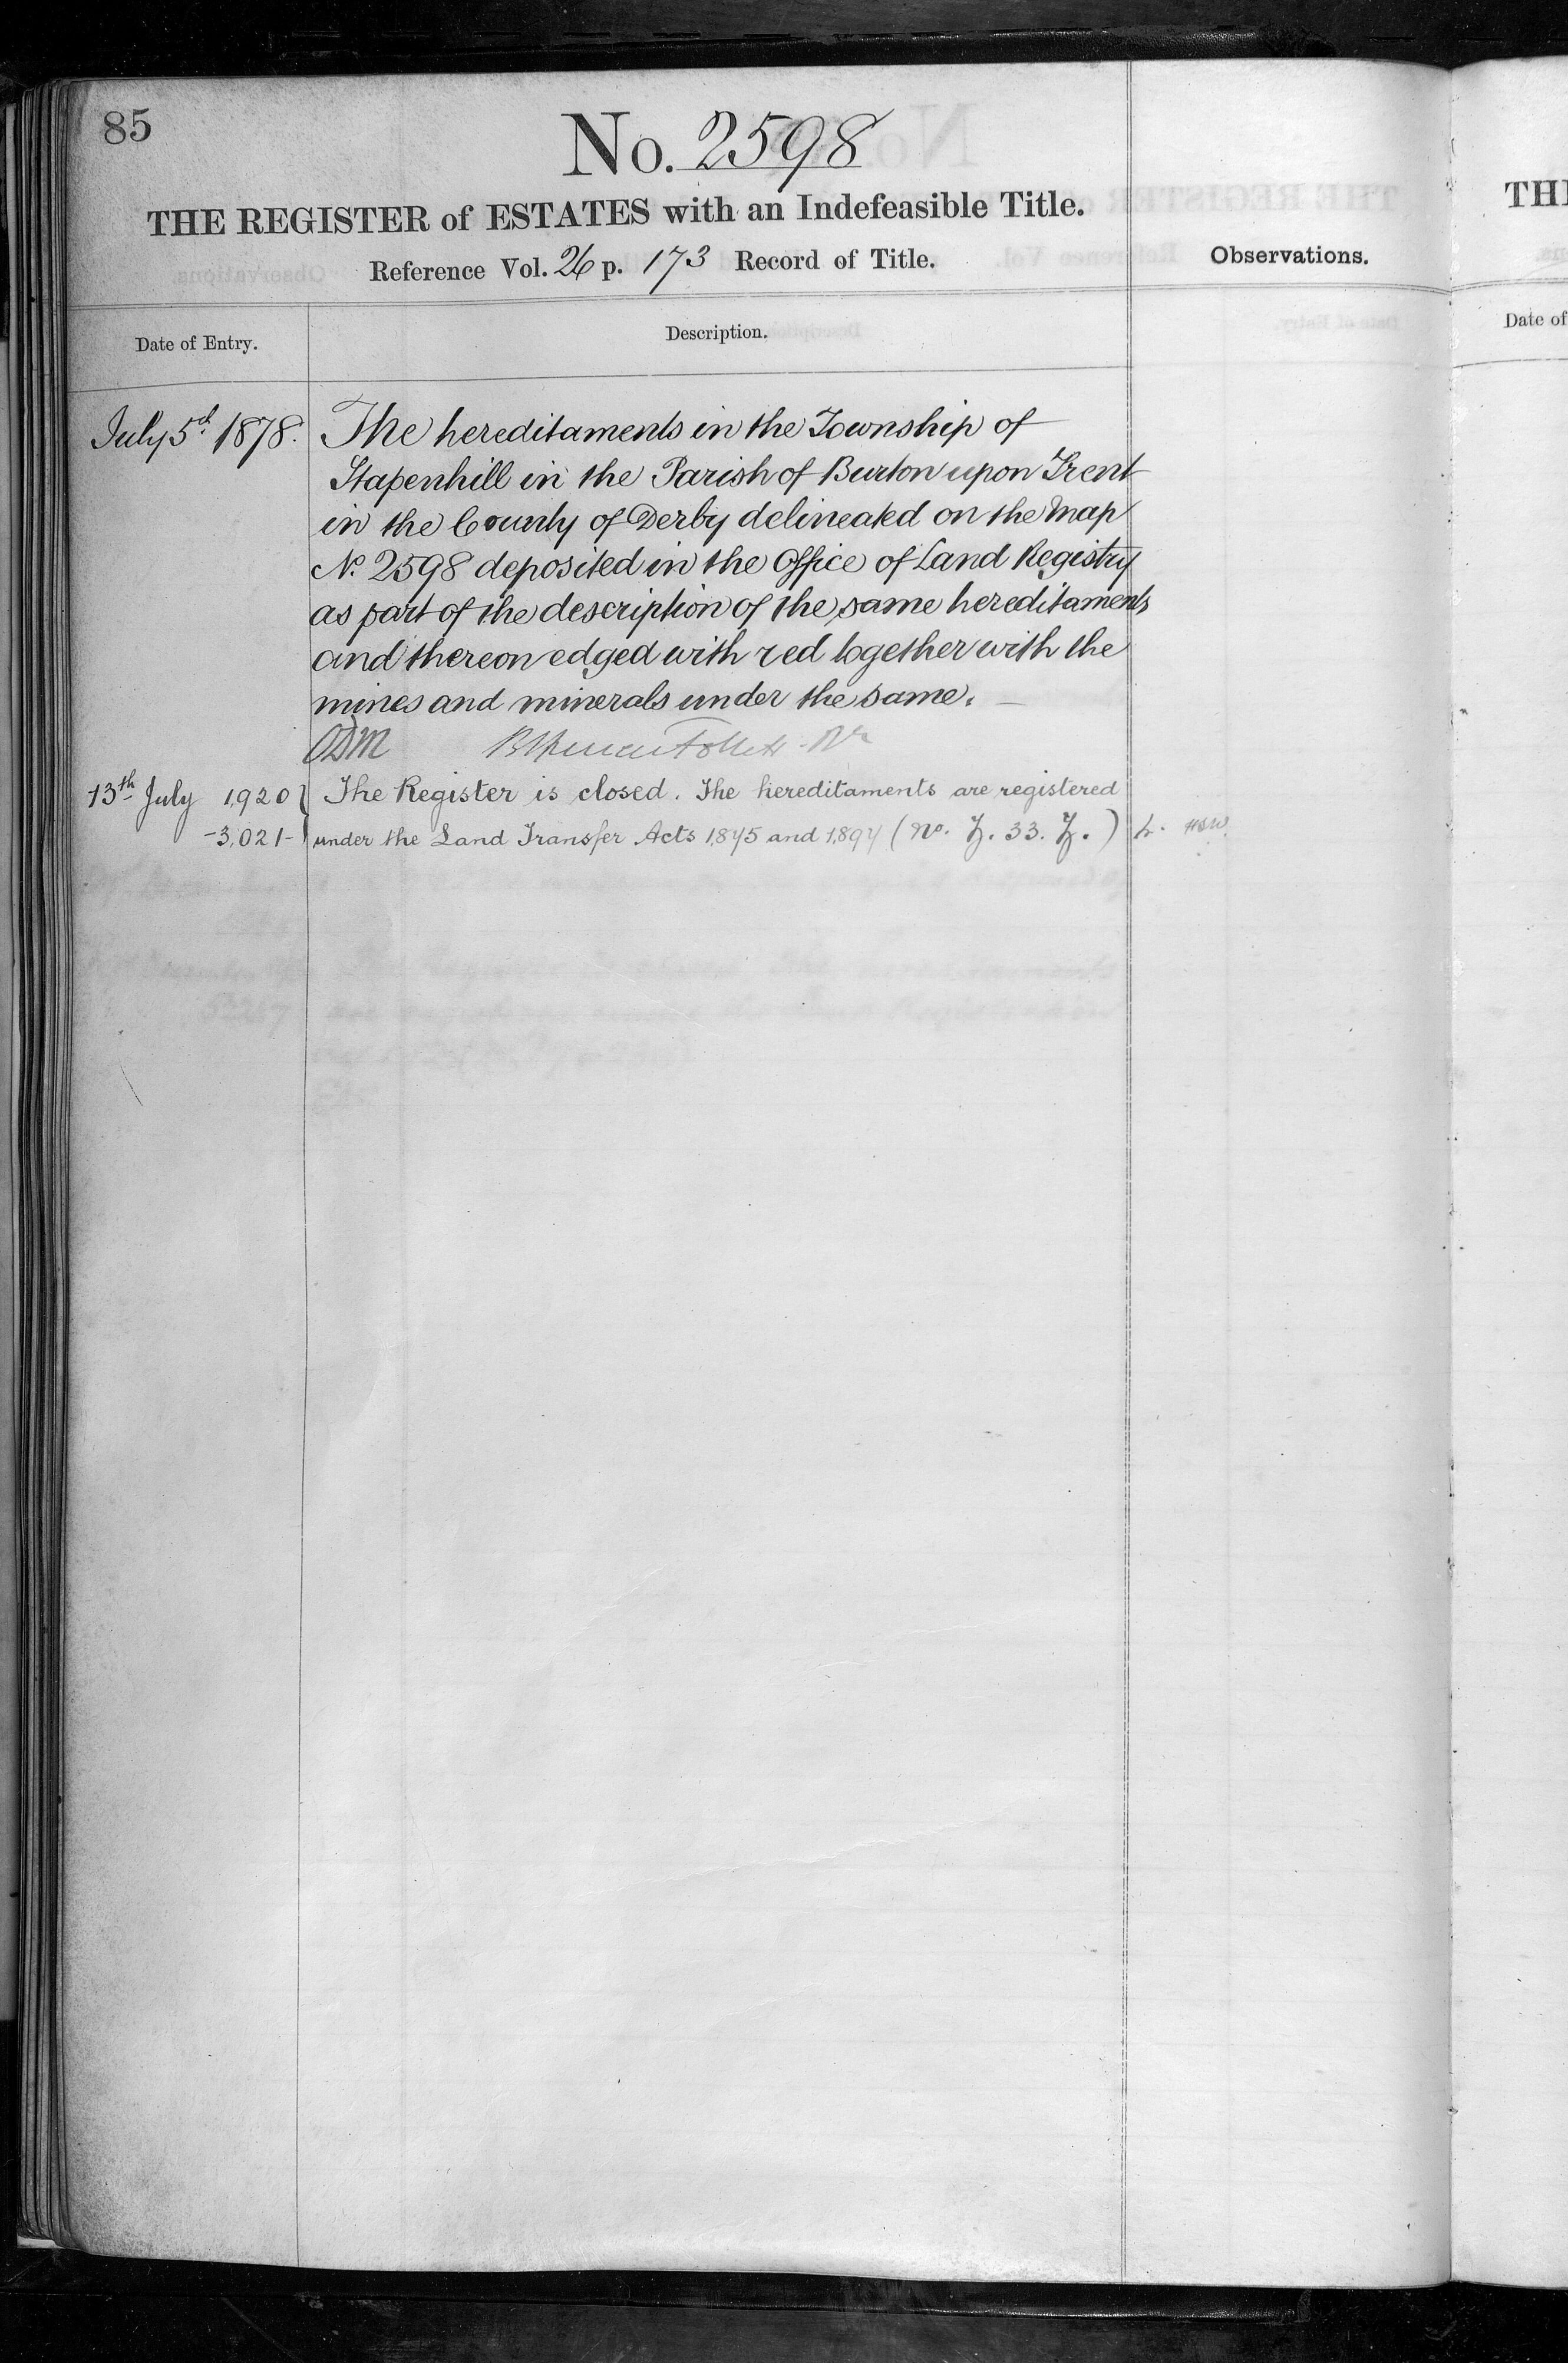 85
No. 2598
THE REGISTER of ESTATES with an Indefeasible Title.
Reference Vol. 26 p. 173 Record of Title.
Observations.
Date of Entry.
Description.
July 5th 1878.
The hereditaments in the Township of
Stapenhill in the Parish of Burton upon Trent
in the County of Derby delineated on the Map
No. 2598 deposited in the Office of Land Registry
as part of the description of the same hereditaments
and thereon edged with red together with the
mines and minerals under the same.
13th July 1920
The Register is closed. The hereditaments are registered
-3,021-
under the Land Transfer Acts 1875 and 1897 (No. Z. 33. Z.)
TH
Date of